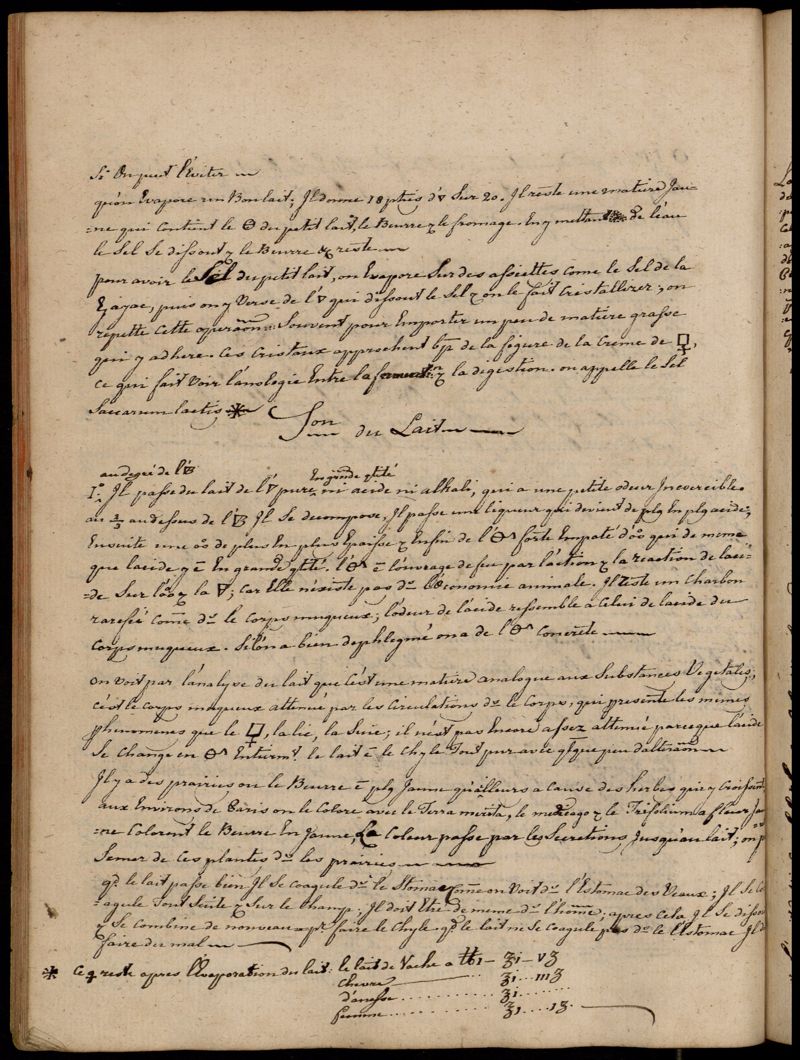 Si On peut l'éviter
quon Evapore un Bon lait; Il donne 18 pties d'🜄 Sur 20. Il reste une matiere Jau-
=ne qui contient le 🜔 du petit lait, le Beurre & le fromage. En y mettant de l'eau
le Sel Se dissout & le Beurre reste
pour avoir le Sel du petit lait, on Evapore Sur des assiettes come le Sel de la
Garaye, puis on y Verse de l'🜄 qui dissout le Sel & on le fait Cristallizer; on
repette Cette operaõn Souvent pour Emporter un peu de matiere grasse
qui y adhere. Ces Cristaux approchent bp de la figure de la Creme de 🜿,
Ce qui fait Voir l'anologie Entre la ferment.on & la digestion. on appelle le Sel
Saccarum lactis *
du Lait
au degré de l'
En grande qtité
I° Il passe du lait de l'🜄 pure, ni acide ni alkali, qui a une petite odeur
au dessous de l' Il Se decompose. Il passe une liqueur qui devient de plq En plq acide,
Ensuite une de plus En plus Epaisse & Enfin de l' forte Empaté d' qui de meme
que lacide y ē En grande qtité. l' ē l'ouvrage du feu par l'action & la reaction de laci-
=de Sur l' & la ; car Elle n'existe pas ds l'Œconomie animale. Il reste un Charbon
rarefié come ds le Corps muqueux; l'odeur de lacide ressemble à Celui de lacide du
Corps muqueux. Si l'on a bien dephlegmé on a de l' concrete
on voit par l'analyse du lait que C'est une matiere analogue aux Substances Vegetales;
C'est le Corps muqueux attenué par les Circulations ds le Corps, qui presente les mêmes
phenomenes que le 🜿, la lie, la Suie; il n'est pas Encore assez attenué parceque l'acide
Se change en Entierm.t le lait ē le Chyle Tout pur avec qlque peu d'alteraõn
Il y a des prairies ou le Beurre ē plq Jaune qu'ailleurs a cause des herbes qui y Croissent
aux Environs de Paris on le Colore avec le Terra merita, le medicago & le Trifolium a fleur Jau
=ne Colorent le Beurre En Jaune, La Coleur passe par les Secretions Jusqu'au lait; on p
Semer de Ces plantes ds les prairies
qd le lait passe bien Il Se Coagule ds le Stomac Come on Voit ds l'Estomac des Veaux; Il Se Co
=agule Tout Suite & Sur le Champ; Il doit Etre de meme ds l'home, apres Cela Il Se dissou
& Se Combine de nouveau pr faire le Chyle. qd le lait ne Se Coagule pas ds le l'Estomac Il d
faire du mal
* Ce q reste apres l'Evaporation du lait: le lait de Vache a ℔i - ℥i - vʒ
Chevre ℥i ... iiiʒ
d'anesse ........ ℥i ......
femme ........ ℥i .... iʒ